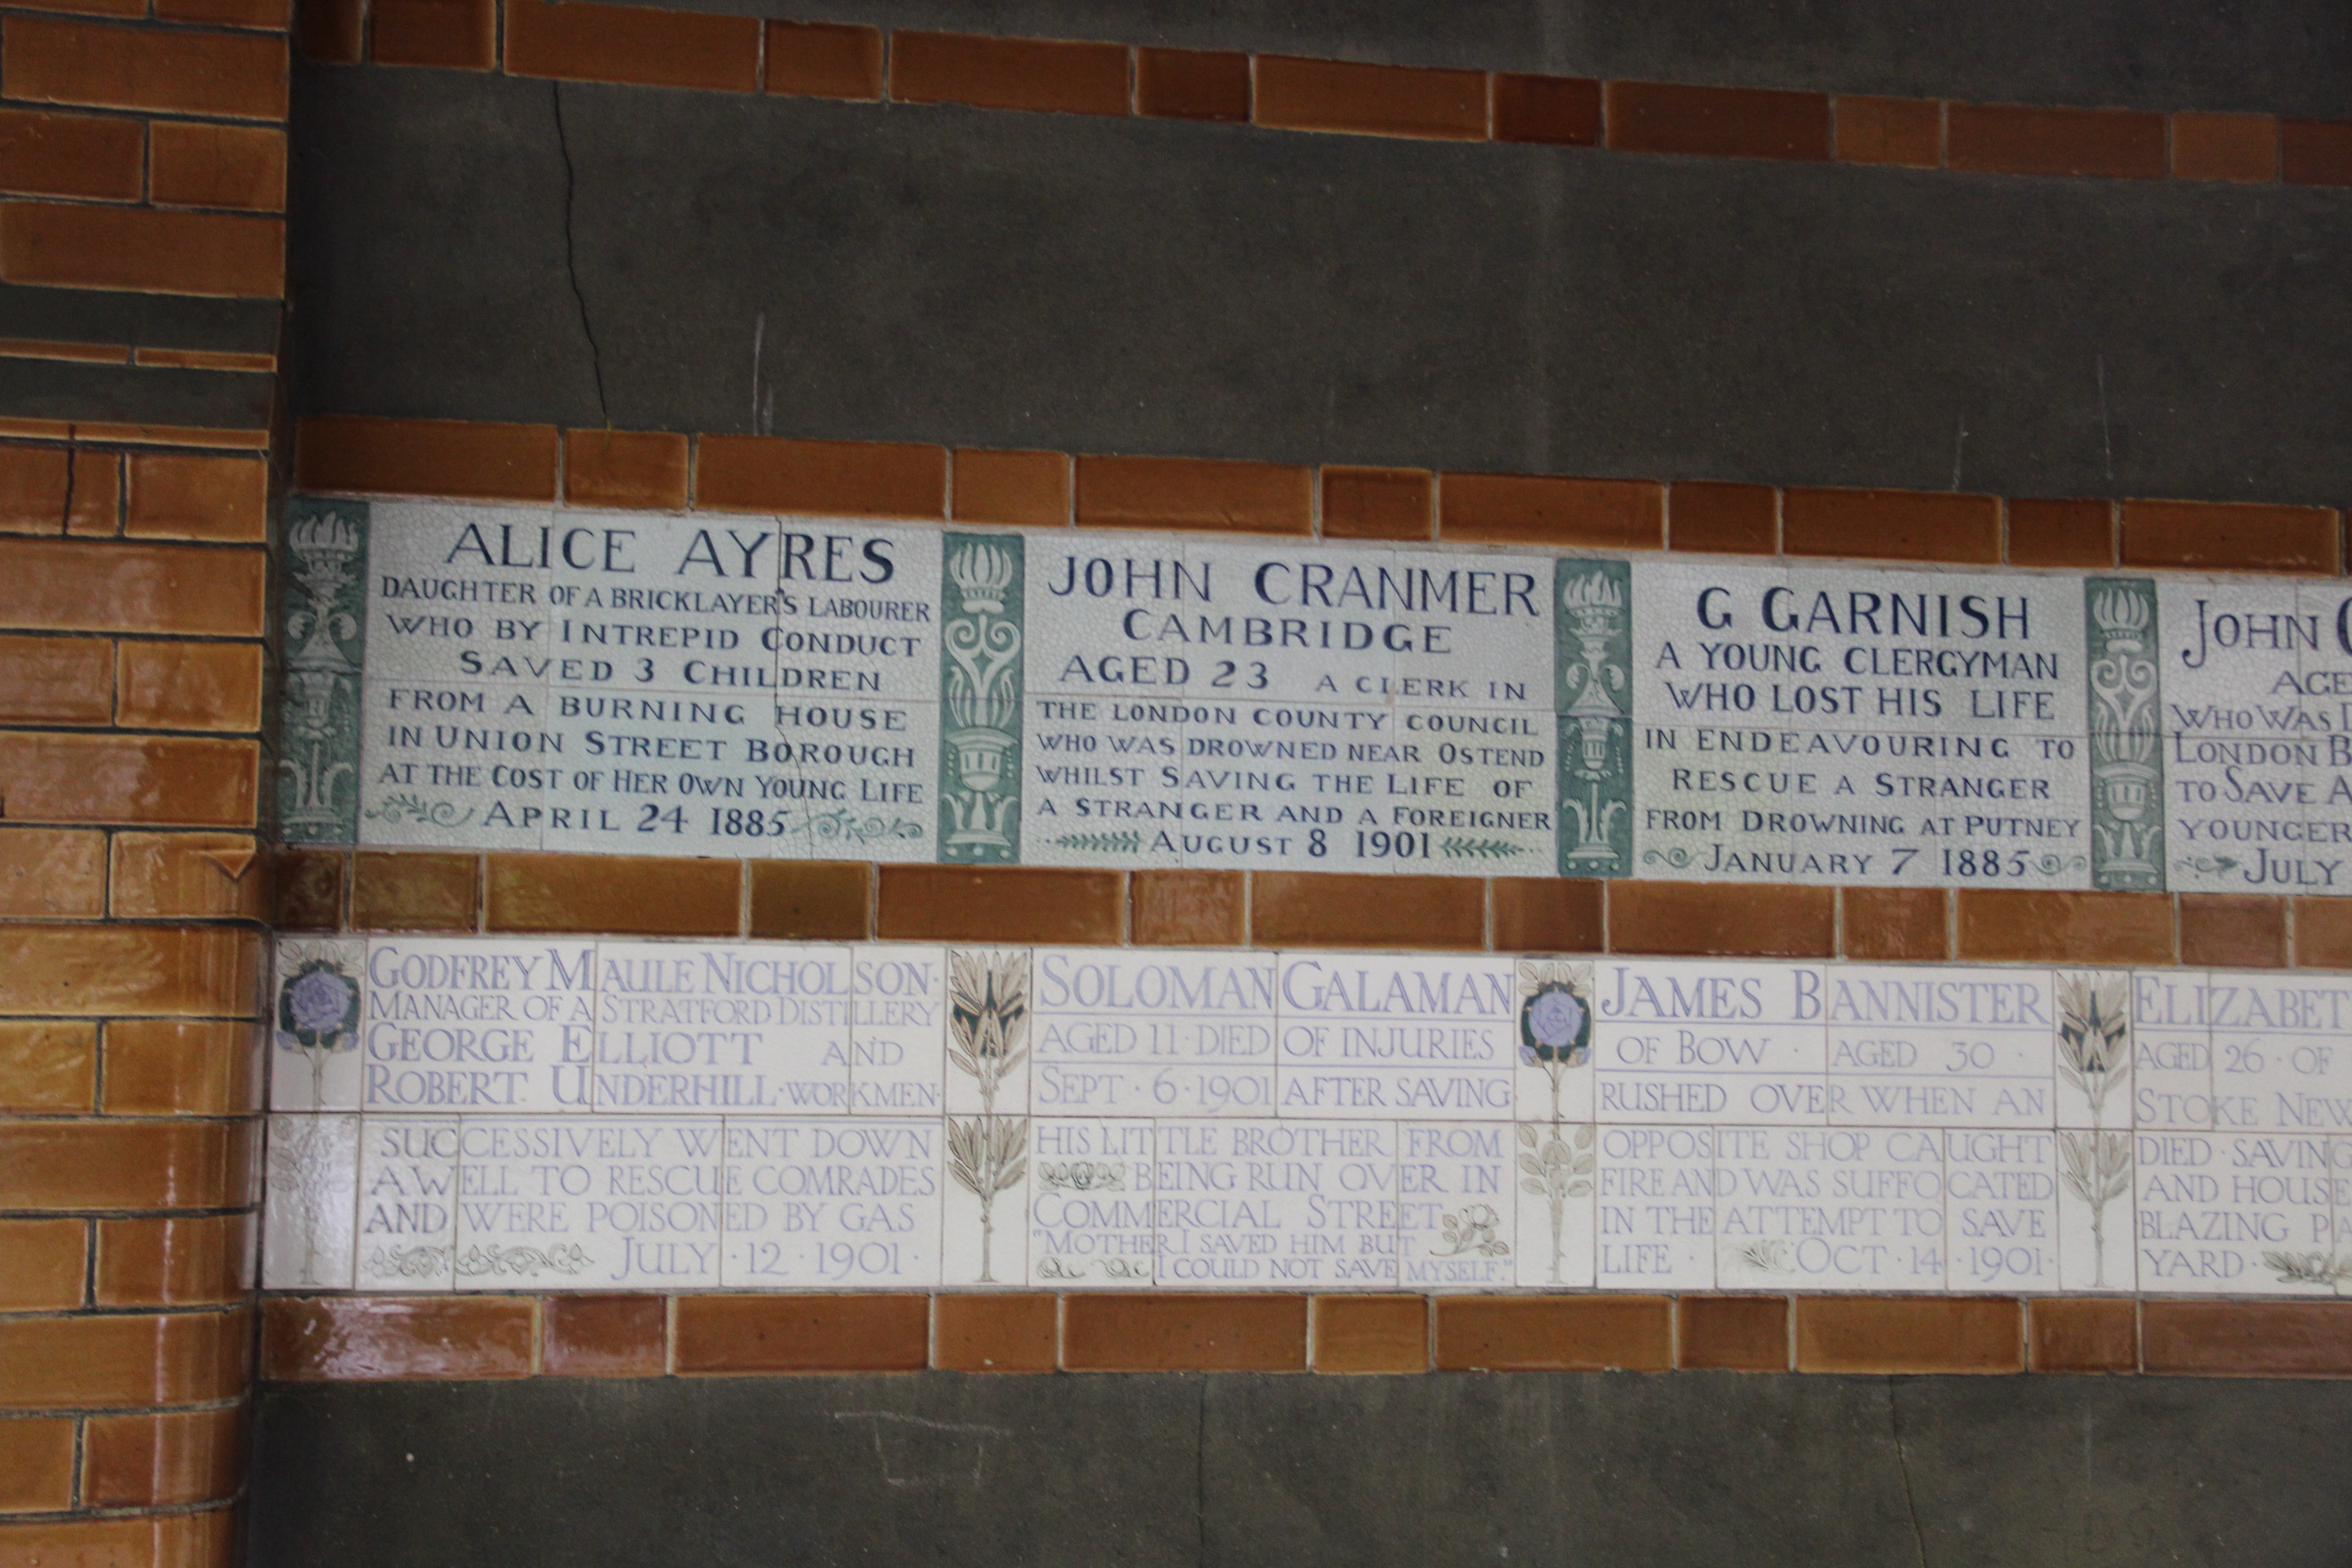 ALICE AYRES
DAUGHTER OF A BRICKLAYER'S LABOURER
WHO BY INTREPID CONDUCT
SAVED 3 CHILDREN
FROM A BURNING HOUSE
IN UNION STREET BOROUGH
AT THE COST OF HER OWN YOUNG LIFE
APRIL 24 1885
JOHN CRANMER
CAMBRIDGE
AGED 23 A CLERK IN
THE LONDON COUNTY COUNCIL
WHO WAS DROWNED NEAR OSTEND
WHILST SAVING THE LIFE OF
A STRANGER AND A FOREIGNER
AUGUST 8 1901
G GARNISH
A YOUNG CLERGYMAN
WHO LOST HIS LIFE
IN ENDEAVOURING TO
RESCUE A STRANGER
FROM DROWNING AT PUTNEY
JANUARY 7 1885
JOHN
AGE
WHO WAS
LONDON
TO SAVE A
YOUNGER
JULY
GODFREY MAULE NICHOLSON·
MANAGER OF A STRATFORD DISTILLERY
GEORGE ELLIOTT AND
ROBERT UNDERHILL·WORKMEN·
SUCCESSIVELY WENT DOWN
A WELL TO RESCUE COMRADES
AND WERE POISONED BY GAS
JULY·12·1901·
SOLOMAN GALAMAN
AGED 11·DIED OF INJURIES
SEPT·6·1901 AFTER SAVING
HIS LITTLE BROTHER FROM
BEING RUN OVER IN
COMMERCIAL STREET
"MOTHER I SAVED HIM BUT
I COULD NOT SAVE MYSELF."
JAMES BANNISTER
OF BOW · AGED 30 ·
RUSHED OVER WHEN AN
OPPOSITE SHOP CAUGHT
FIRE AND WAS SUFFOCATED
IN THE ATTEMPT TO SAVE
LIFE · OCT·14·1901·
ELIZABET
AGED 26·OF
STOKE NEW
DIED·SAVING
AND HOUSE
BLAZING PA
YARD·